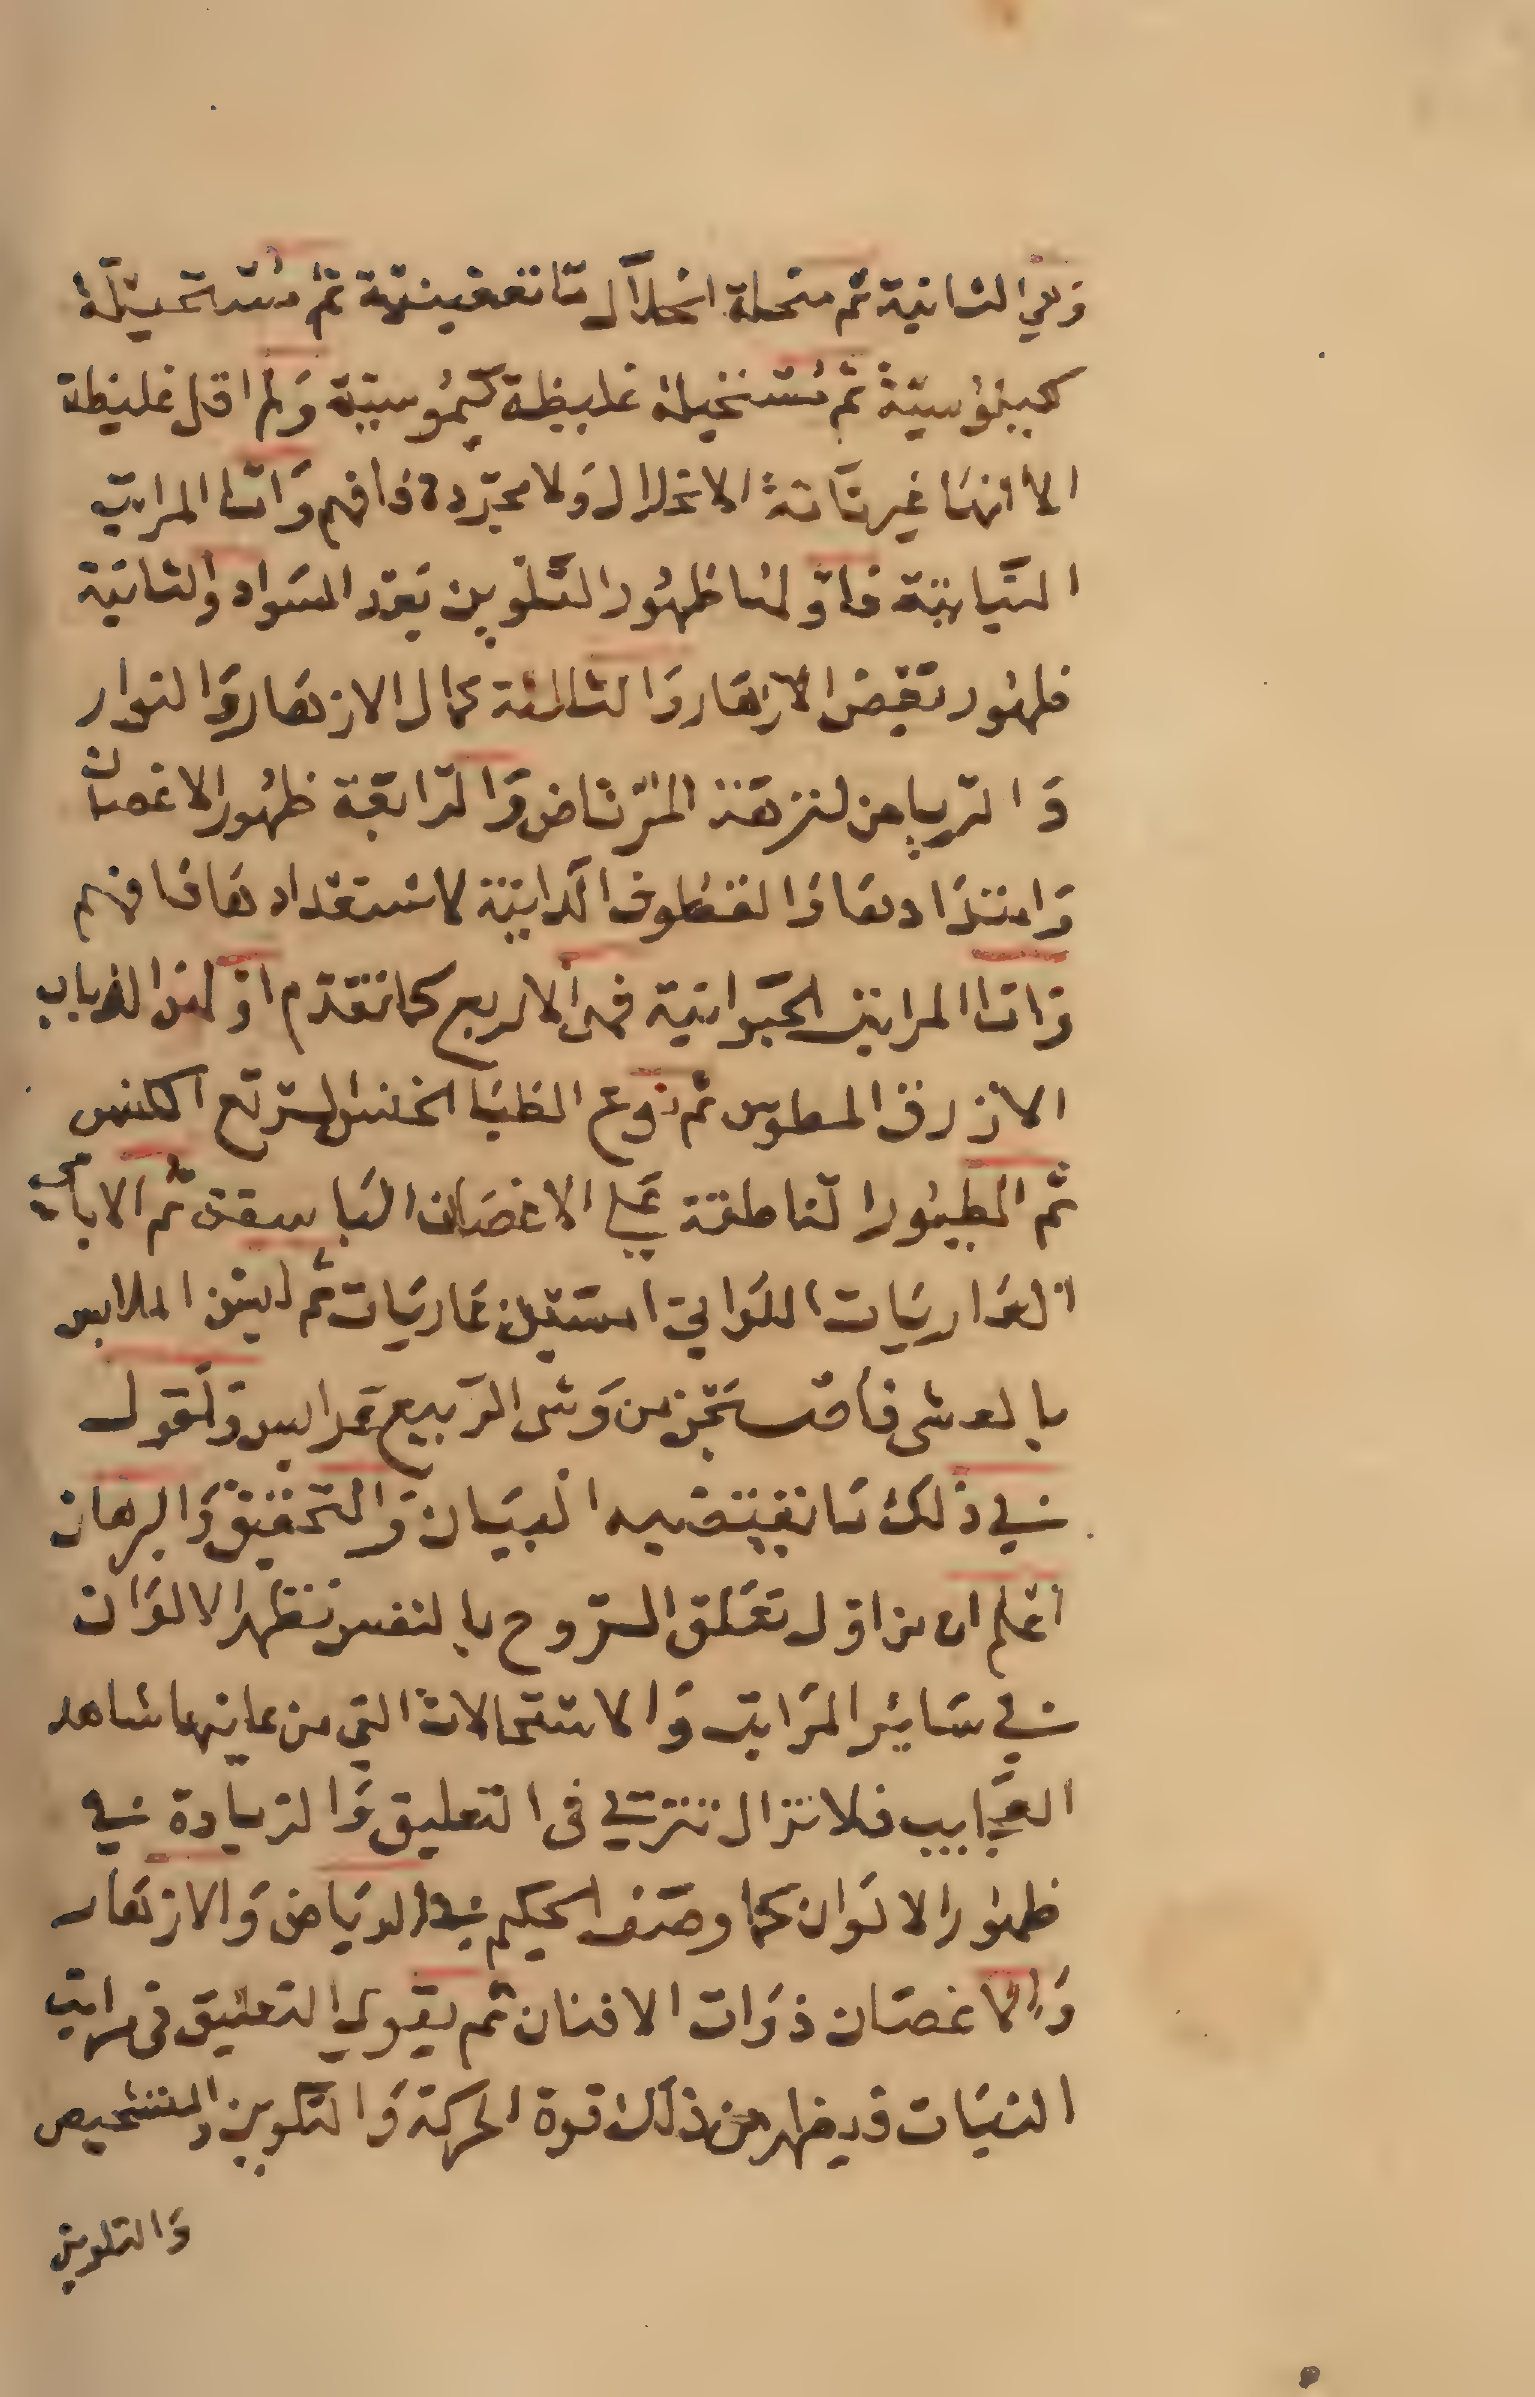 وهي الثانية ثم منحلة انحلال ما تعفينية ثم مستحيلة
كيلوسية ثم مستحيلة غليظة كيموسية ولم اقل غليظة
الا انها غير تامة الانحلال ولا مجردة فافهم واما المراتب
النباتية فاولها ظهور التلوين بعد السواد والثانية
ظهور بعض الازهار والثالثة كمال الازهار والنوار
والرياض لنزهة المرتاض والرابعة ظهور الاغصان
وامتدادها والقطوف الدانية لاستعدادها فافهم
واما المراتب الحيوانية فهي الاربع كما تقدم اولها الذباب
الازرق المطوس ثم نوع الظبا الخنس الرتع الكنس
ثم الطيور الناطقة على الاغصان الباسقة ثم الاياي
العاريات اللواتي امسين عاريات ثم لبسن الملابس
بالعشى فاصبحن من وشى الربيع عرايس ولنقول
في ذلك ما يقتضيه البيان والتحقيق والبرهان
اعلم ان من اول تعلق الروح بالنفس تظهر الالوان
في سائر المراتب والاستحالات التي من عاينها شاهد
العجايب فلا تزال تترقي فى التعليق والزيادة في
ظهور الالوان كما وصف الحكيم في الرياض والازهار
والاغصان ذوات الافنان ثم يقوي التعليق فى مراتب
النبات فيظهر من ذلك قوة الحركة والتكوين والتشخيص
والتلوين